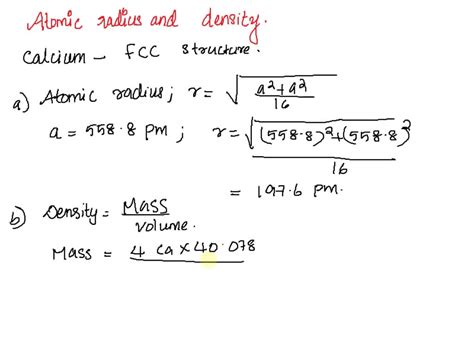 Atomic radius and density.
Calcium - FCC structure.
a) Atomic radius; r = √(a²+a²/16)
a = 558.8 pm; r = √((558.8)²+(558.8)²/16)
= 197.6 pm.
b) Density = Mass/Volume.
Mass = 4 Ca × 40.078